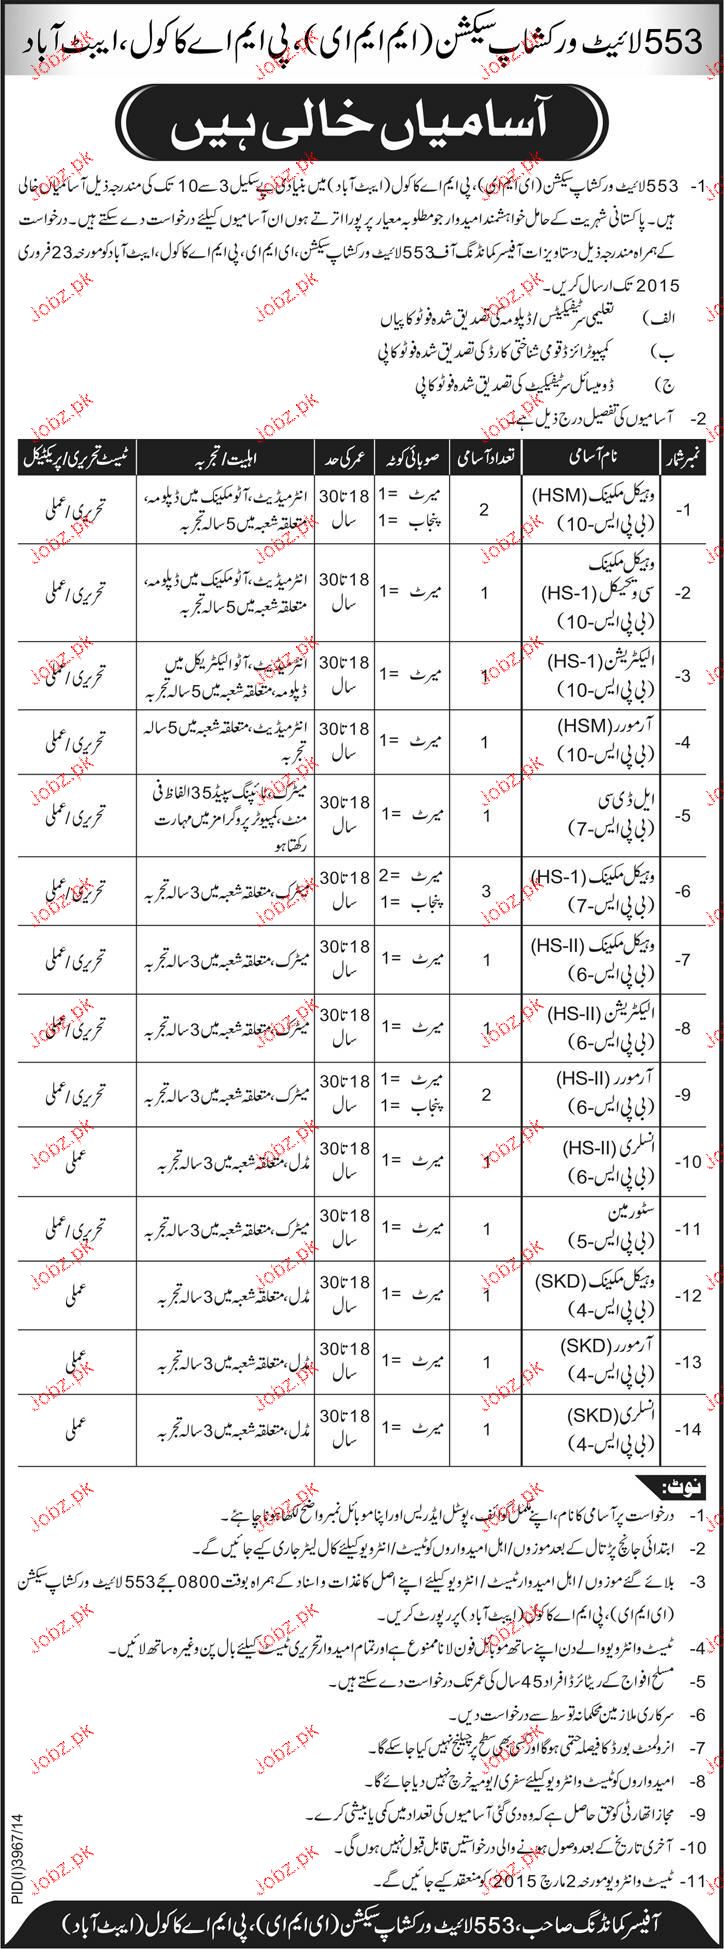 553 لائیٹ ورکشاپ سیکشن (ایم ایم ای)، پی ایم اے کاکول، ایبٹ آباد
آسامیاں خالی ہیں
1- 553 لائیٹ ورکشاپ سیکشن (ای ایم ای)، پی ایم اے کاکول (ایبٹ آباد) میں بنیادی پے سکیل 3 سے 10 تک کی مندرجہ ذیل آسامیاں خالی
ہیں۔ پاکستانی شہریت کے حامل خواہشمند امیدوار جو مطلوبہ معیار پر پورا اترتے ہوں ان آسامیوں کیلئے درخواست دے سکتے ہیں۔ درخواست
کے ہمراہ مندرجہ ذیل دستاویزات آفیسر کمانڈنگ آف 553 لائیٹ ورکشاپ سیکشن، ای ایم ای، پی ایم اے کاکول، ایبٹ آباد کو مورخہ 23 فروری
2015 تک ارسال کریں۔
الف) تعلیمی سرٹیفکیٹس/ڈپلومہ کی تصدیق شدہ فوٹو کاپیاں
ب) کمپیوٹرائزڈ قومی شناختی کارڈ کی تصدیق شدہ فوٹو کاپی
ج) ڈومیسائل سرٹیفکیٹ کی تصدیق شدہ فوٹو کاپی
2- آسامیوں کی تفصیل درج ذیل ہے۔
نمبر شمار نام آسامی تعداد آسامی صوبائی کوٹہ عمر کی حد اہلیت/تجربہ ٹیسٹ تحریری/پریکٹیکل
1- وہیکل مکینک (HSM) (بی پی ایس-10) 2 میرٹ =1 پنجاب =1 18 تا 30 سال انٹرمیڈیٹ، آٹو مکینک میں ڈپلومہ، متعلقہ شعبہ میں 5 سالہ تجربہ تحریری/عملی
2- وہیکل مکینک سی ویحیکل (HS-1) (بی پی ایس-10) 1 میرٹ =1 18 تا 30 سال انٹرمیڈیٹ، آٹو مکینک میں ڈپلومہ، متعلقہ شعبہ میں 5 سالہ تجربہ تحریری/عملی
3- الیکٹریشن (HS-1) (بی پی ایس-10) 1 میرٹ =1 18 تا 30 سال انٹرمیڈیٹ، آٹو الیکٹریکل میں ڈپلومہ، متعلقہ شعبہ میں 5 سالہ تجربہ تحریری/عملی
4- آرمورر (HSM) (بی پی ایس-10) 1 میرٹ =1 18 تا 30 سال انٹرمیڈیٹ، متعلقہ شعبہ میں 5 سالہ تجربہ تحریری/عملی
5- ایل ڈی سی (بی پی ایس-7) 1 میرٹ =1 18 تا 30 سال میٹرک، ٹائپنگ سپیڈ 35 الفاظ فی منٹ، کمپیوٹر پروگرامز میں مہارت رکھتا ہو تحریری/عملی
6- وہیکل مکینک (HS-1) (بی پی ایس-7) 3 میرٹ =2 پنجاب =1 18 تا 30 سال میٹرک، متعلقہ شعبہ میں 3 سالہ تجربہ تحریری/عملی
7- وہیکل مکینک (HS-II) (بی پی ایس-6) 1 میرٹ =1 18 تا 30 سال میٹرک، متعلقہ شعبہ میں 3 سالہ تجربہ تحریری/عملی
8- الیکٹریشن (HS-II) (بی پی ایس-6) 1 میرٹ =1 18 تا 30 سال میٹرک، متعلقہ شعبہ میں 3 سالہ تجربہ تحریری/عملی
9- آرمورر (HS-II) (بی پی ایس-6) 2 میرٹ =1 پنجاب =1 18 تا 30 سال میٹرک، متعلقہ شعبہ میں 3 سالہ تجربہ تحریری/عملی
10- انسلری (HS-II) (بی پی ایس-6) 1 میرٹ =1 18 تا 30 سال مڈل، متعلقہ شعبہ میں 3 سالہ تجربہ عملی
11- سٹورمین (بی پی ایس-5) 1 میرٹ =1 18 تا 30 سال میٹرک، متعلقہ شعبہ میں 3 سالہ تجربہ تحریری/عملی
12- وہیکل مکینک (SKD) (بی پی ایس-4) 1 میرٹ =1 18 تا 30 سال مڈل، متعلقہ شعبہ میں 3 سالہ تجربہ عملی
13- آرمورر (SKD) (بی پی ایس-4) 1 میرٹ =1 18 تا 30 سال مڈل، متعلقہ شعبہ میں 3 سالہ تجربہ عملی
14- انسلری (SKD) (بی پی ایس-4) 1 میرٹ =1 18 تا 30 سال مڈل، متعلقہ شعبہ میں 3 سالہ تجربہ عملی
نوٹ:
1- درخواست پر آسامی کا نام، اپنے مکمل کوائف، پوسٹل ایڈریس اور اپنا موبائل نمبر واضح لکھا ہونا چاہئے۔
2- ابتدائی جانچ پڑتال کے بعد موزوں/اہل امیدواروں کو ٹیسٹ/انٹرویو کیلئے کال لیٹر جاری کیے جائیں گے۔
3- بلائے گئے موزوں/اہل امیدوار ٹیسٹ/انٹرویو کیلئے اپنے اصل کاغذات و اسناد کے ہمراہ بوقت 0800 بجے 553 لائیٹ ورکشاپ سیکشن
(ای ایم ای)، پی ایم اے کاکول (ایبٹ آباد) پر رپورٹ کریں۔
4- ٹیسٹ و انٹرویو والے دن اپنے ساتھ موبائل فون لانا ممنوع ہے اور تمام امیدوار تحریری ٹیسٹ کیلئے بال پن وغیرہ ساتھ لائیں۔
5- مسلح افواج کے ریٹائرڈ افراد 45 سال کی عمر تک درخواست دے سکتے ہیں۔
6- سرکاری ملازمین محکمانہ توسط سے درخواست دیں۔
7- انرولمنٹ بورڈ کا فیصلہ حتمی ہوگا اور کسی بھی سطح پر چیلنج نہیں کیا جا سکے گا۔
8- امیدواروں کو ٹیسٹ و انٹرویو کیلئے سفری/یومیہ خرچ نہیں دیا جائے گا۔
9- مجاز اتھارٹی کو حق حاصل ہے کہ وہ دی گئی آسامیوں کی تعداد میں کمی یا بیشی کرے۔
10- آخری تاریخ کے بعد وصول ہونے والی درخواستیں قابل قبول نہیں ہوں گی۔
11- ٹیسٹ و انٹرویو مورخہ 2 مارچ 2015 کو منعقد کیے جائیں گے۔
PID(I)3967/14
آفیسر کمانڈنگ صاحب، 553 لائیٹ ورکشاپ سیکشن (ای ایم ای)، پی ایم اے کاکول (ایبٹ آباد)
Jobz.pk